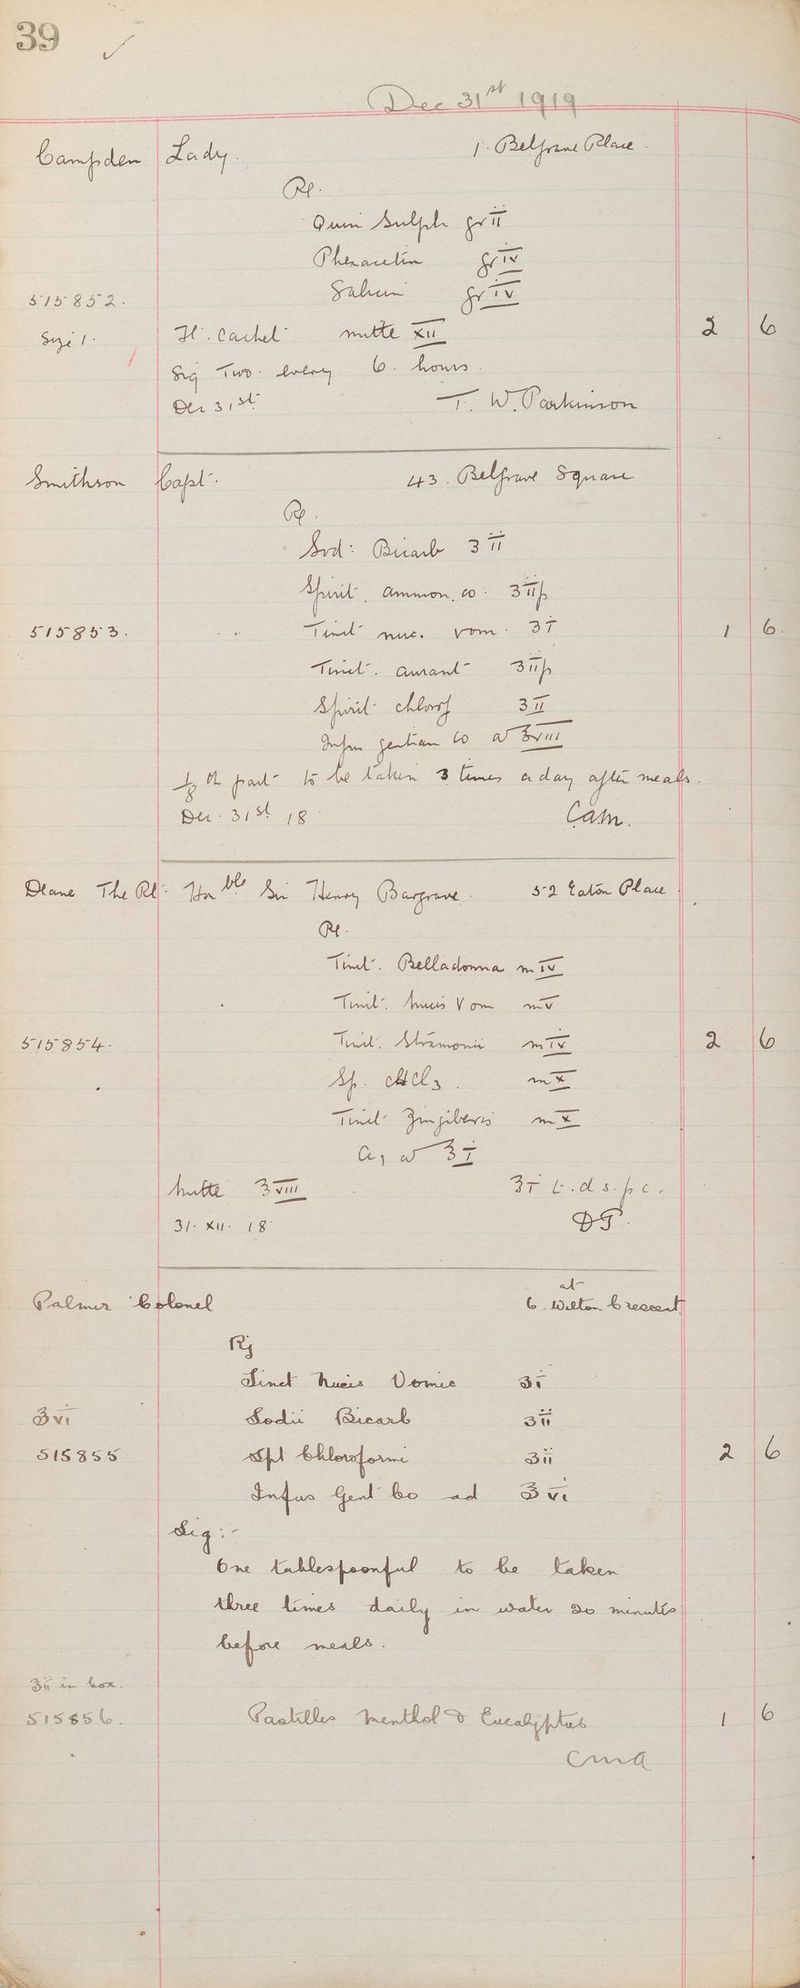 39
Dec 31st 1919
Campden Lady. 1. Belgrave Place.
Rp.
Quin Sulph gr ii
Phenacetin gr iv
515852. Salicin gr iv
Size 1. Ft. Cachet mitte xii 2 6
Sig Two. every 6. hours.
Dec 31st T. W. Parkinson
Smithson Capt. 43. Belgrave Square
Rp.
Sod: Bicarb ʒ ii
Spirit. ammon. co. ʒ iiþ
515853. Tinct nuc. vom. ʒ i 1 6.
Tinct. aurant ʒ iiþ
Spirit chlorof ʒ ii
Infus gentian co ad ℥ viii
1/8 th part to be taken 3 times a day after meals.
Dec. 31st 18 Cam.
Deane The Rt. Honble Sir Henry Bargrave. 52 Eaton Place
Rp.
Tinct. Belladonna m iv
Tinct. Nucis Vom m v
515854. Tinct. Stramonii m iv 2 6
Sp. CHCl3. m x
Tinct Zingiberis m x
Aq ad ℥ i
Mitte ℥ viii ℥ i t.d s. p c.
31. XII. 18
Palmer Colonel at
6. Wilton Crescent
Rj
Tinct Nucis Vomic ʒ i
℥ vi Sodii Bicarb ʒ ii
515855 Spt Chloroformi ʒ ii 2 6
Infus Gent Co ad ℥ vi
Sig:-
One tablespoonful to be taken
three times daily in water 20 minutes
before meals.
℥ ii in box.
515856. Pastilles Menthol & Eucalyptus 1 6
Cma